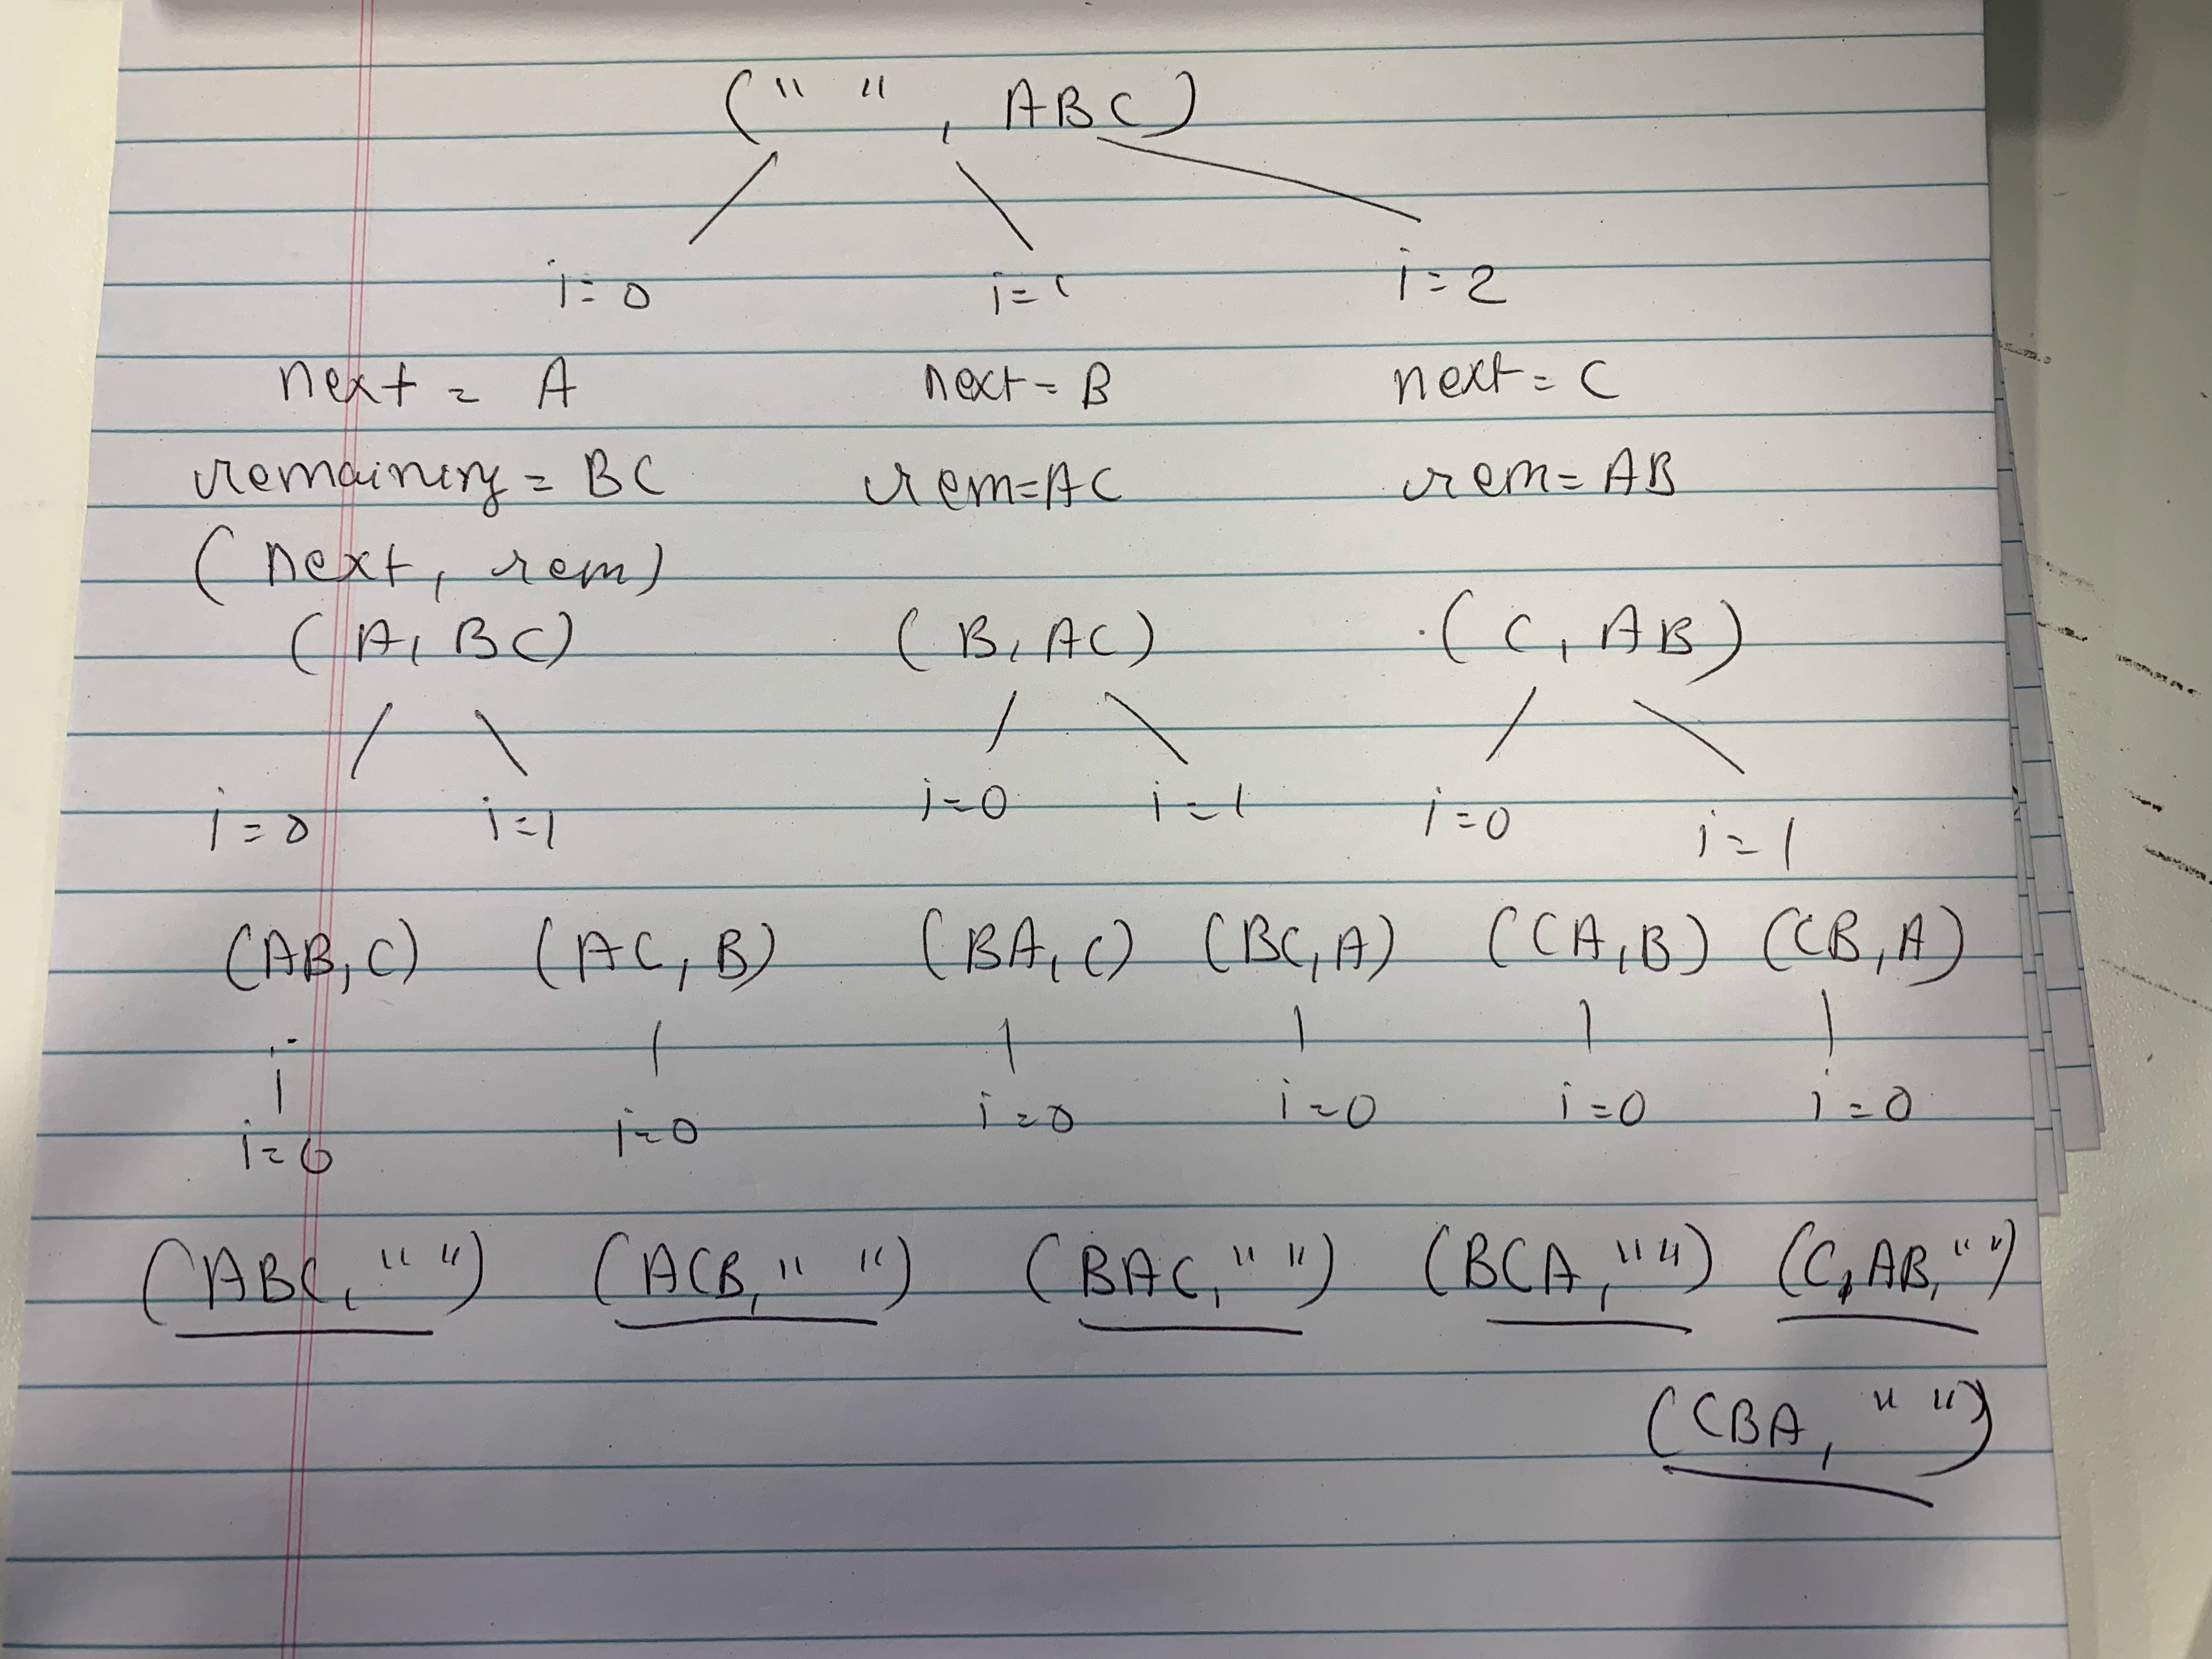 (" ", ABC)
i=0 i=1 i=2
next = A next = B next = C
remaining = BC rem=AC rem=AB
(next, rem)
(A, BC) (B, AC) (C, AB)
i=0 i=1 i=0 i=1 i=0 i=1
(AB, C) (AC, B) (BA, C) (BC, A) (CA, B) (CB, A)
i=0 i=0 i=0 i=0 i=0 i=0
(ABC, " ") (ACB, " ") (BAC, " ") (BCA, "") (C,AB, "")
(CBA, " ")